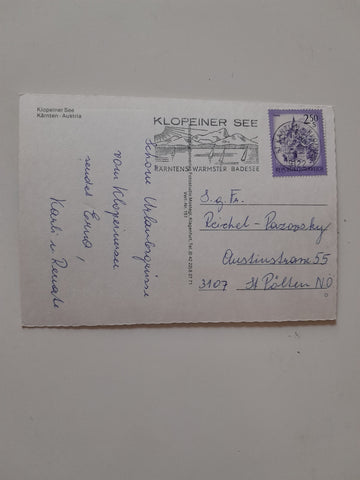 Klopeiner See
Kärnten · Austria
KLOPEINER SEE
KÄRNTENS WÄRMSTER BADESEE
2.50
REPUBLIK ÖSTERREICH
Schöne Urlaubsgrüsse
vom Klopeinersee
sendet Erna,
Karli u Renate
S.g. Fr.
Reichel-Pazovsky
Austinstrasse 55
3107 St Pölten NÖ